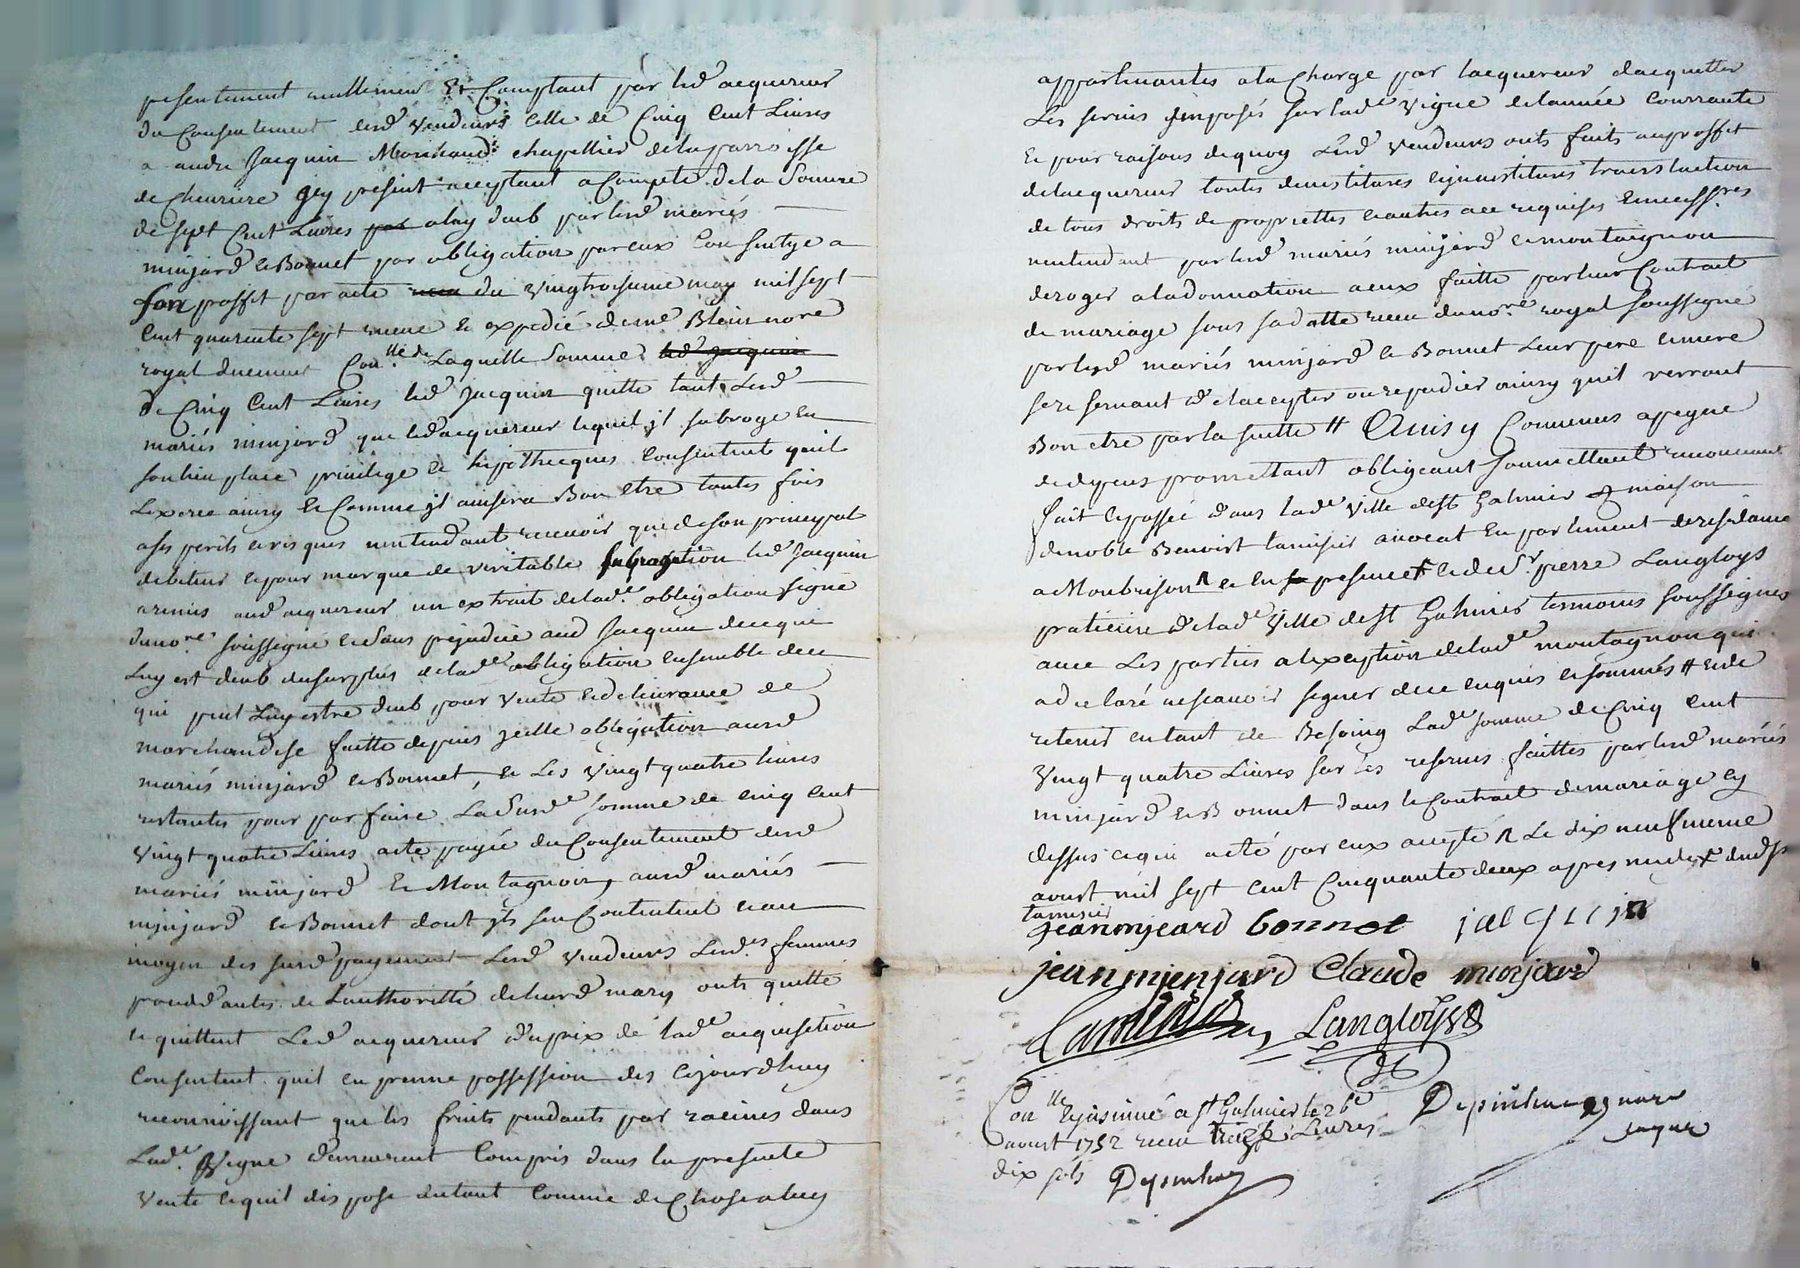 presentement reellement Et Comptant par led acquereur
du Consentement desd vendeurs celle de Cinq Cent Livres
a andre Jacquin Marchand chapellier de la parroisse
de Chevriere icy present acceptant a Compte de la Somme
de sept Cent Livres par a luy deub par lesd mariés
minjard et Bonnet par obligation par eux Consentye a
son proffit par acte du vingtroisieme may mil sept
Cent quarente sept receue et expedié de me Blein nore
royal duement Con.llé de Laquelle Somme led Jacquin
de Cinq Cent Livres led Jacquin quitte tant Lesd
mariés minjard que led acquereur lequel il subroge en
son lieu place privilege et hipothecques Consentent quil
Lexerce ainsy et Comme il avisera Bon etre toutes fois
a ses perils et risques nentendant recevoir que de son principal
debiteur et pour marque de veritable subrogation led Jacquin
a remis aud acquereur un extrait de lad.e obligation signé
du no.re soussigné et Sans prejudice aud Jacquin de ce qui
Luy est deub du surplus de lad.e obligation ensemble de ce
qui peut Luy estre deub pour vente et delivrance de
marchandise faitte depuis jcelle obligation ausd
mariés minjard et Bonnet, et Les vingt quatre livres
restantes pour parfaire La Susd.e somme de cinq cent
vingt quatre Livres a eté payée du Consentement desd
mariés minjard et Montagnon, ausd mariés
minjard et Bonnet dont ils sen Contentent et au
moyen des susd payement Lesd vendeurs Lesd.es femmes
de Lauthorité de leurd mary onts quitté
et quittent Led acquereur du prix de lad.e acquisition
Consentent quil en prenne possession des cejourdhuy
reconnoissant que les fruits pendants par racines dans
Lad.e Vigne demeurent Compris dans la presente
vente et quil dispose du tout Comme de Chose a luy
appartenantes a la Charge par lacquereur dacquitter
Les servis jmposés sur lad.e vigne de lannée Courrante
Et pour raisons de quoy Lesd vendeurs onts faits au proffit
de lacquereur toutes devestitures et jnvestitures translaction
de tous droits de propriettes et autres a ce requises et necess.res
nentendant par lesd mariés minjard et montaignon
deroger a la donnation a eux faitte par leur Contrait
de mariage sous sa datte receu du no.re royal soussigné
par lesd mariés minjard et Bonnet Leur pere et mere
se reservant de laccepter ou repudier ainsy quil verront
Bon etre par la suitte # Ainsy Convenus a peyne
de dypens promettant obligeant soumettant renonceant
fait et passé dans lad.e ville de st Galmier maison
de noble Benoist tamisier avocat en parlement de residance
a Monbrison et en presence et de s.r pierre Langloys
praticien de lad.e Ville de st Galmier temoins soussignés
avec Les parties a lexception de lad.e montagnon qui
a declaré ne scavoir signer de ce enquis et sommés # Et de
retenir entant de Besoing Lad.e somme de Cinq Cent
vingt quatre Livres sur les reserves faittes par lesd mariés
minjard et Bonnet dans le Contrait de mariage cy
dessus ce qui a eté par eux accepté Le dix neufvieme
aoust mil sept Cent Cinquante deux apres midy
tamisier
jean mjeard bonnet jacquin
jean mienjard Claude minjard
Langloys
Con.lle et jnsinué a st Galmier le 26e
aoust 1752 receu treize Livres
dix sols